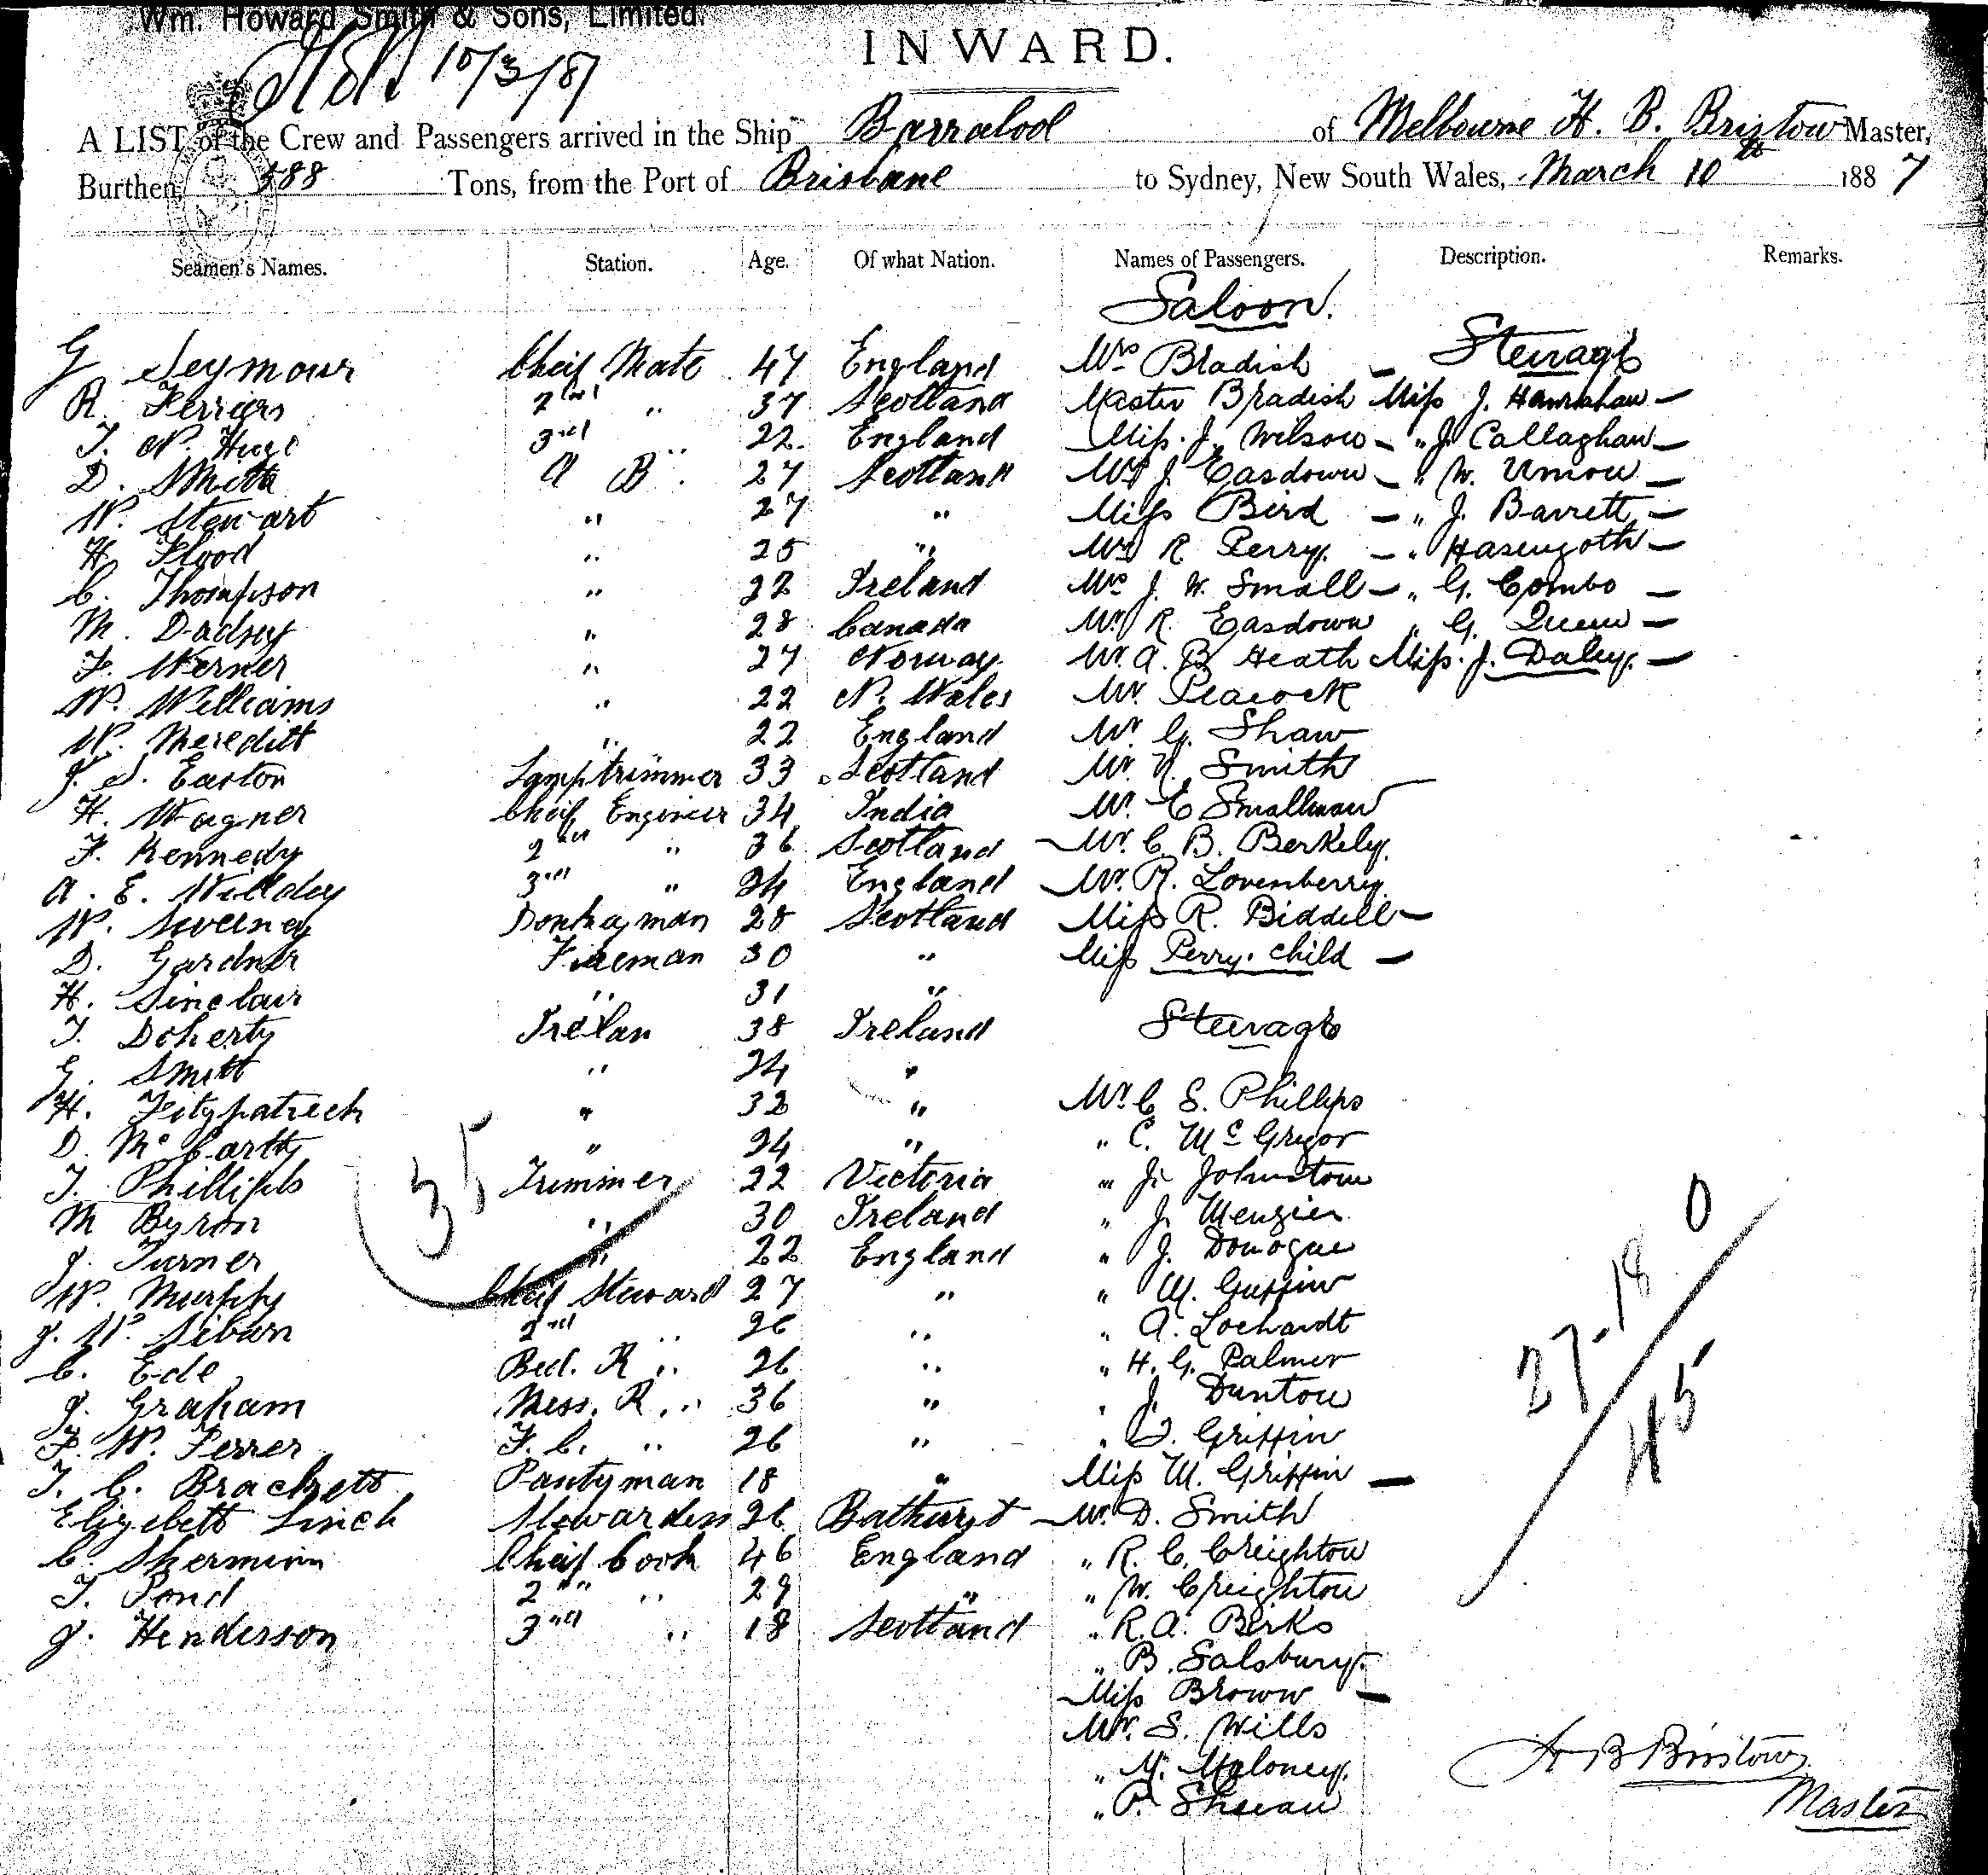 Wm. Howard Smith & Sons, Limited.
INWARD.
10/3/87
A LIST of the Crew and Passengers arrived in the Ship Barrabool of Melbourne H. B. Bristow Master,
Burthen, 588 Tons, from the Port of Brisbane to Sydney, New South Wales, March 10th 1887
Seamen's Names. Station. Age. Of what Nation. Names of Passengers. Description. Remarks.
Saloon.
G Seymour Cheif Mate 47 England Mrs Bradish - Steerage
R. Ferriers 2nd " 37 Scotland Master Bradish Miss J. Hanrahan -
T. W. Huge 3rd " 22 England Miss. J. Wilson - " J. Callaghan -
D. Smith A B. 27 Scotland Mrs J. Easdown - " W. -
W. Stewart " 27 " Miss Bird - " J. Barrett -
H. Flood " 25 " Mrs R Perry. - " -
C. Thompson " 22 Ireland Mrs J. W. Small - " G. Combo -
M. " 28 Canada Mr R. Easdown " G. Queen -
F. Werner " 27 Norway Mr. A. B. Heath Miss. J. Daley. -
W. Williams " 22 N. Wales Mr. Peacock
W. Mereditt " 22 England Mr. G. Shaw
J. S. Easton Lamptrimmer 33 Scotland Mr. Smith
H. Wagner Cheif Engineer 34 India Mr. E Smallman
F. Kennedy 2nd " 36 Scotland Mr. C. B. Berkely.
A. E. Willdey 3rd " 24 England Mr. R. Lovenberry.
W. Sweeney Donkeyman 28 Scotland Miss R. Biddell -
D. Gardner Fireman 30 " Miss Perry. child -
H. Sinclair " 31 "
T. Doherty Irelan 38 Ireland Steerage
G. Smitt " 24 "
H. Fitzpatrick " 32 " Mr. C S. Phillips
D. McCartty " 24 " " C. McGregor
T. Phillips Trimmer 22 Victoria " J. Johnstone
35
M Byron " 30 Ireland " J. Menzies
J. Turner " 22 England " J. Donogue
W. Murphy Cheif Steward 27 " " M. Griffin
J. W. Sibun 2nd " 26 " " A. Lochardt
C. Ede Bed. R " 26 " " H. G. Palmer
J. Graham Mess. R " 36 " " J. Dunton
F. W. Ferrer F. C. " 26 " " Griffin
T. C. Brackett Pantyman 18 " Miss M. Griffin -
Elizebett Linch Stewardess 26 Bathurst Mr. D. Smith
C. Shermison Cheif Cook 46 England " R. C. Creighton
T. Pond 2nd " 29 " " W. Creighton
J. Henderson 3rd " 18 Scotland " R. A. Berks
" B. Salsbury.
Miss Brown -
Mr. S. Wills
" M. Maloney.
" P.
27.18 0
45
H B Bristow
Master